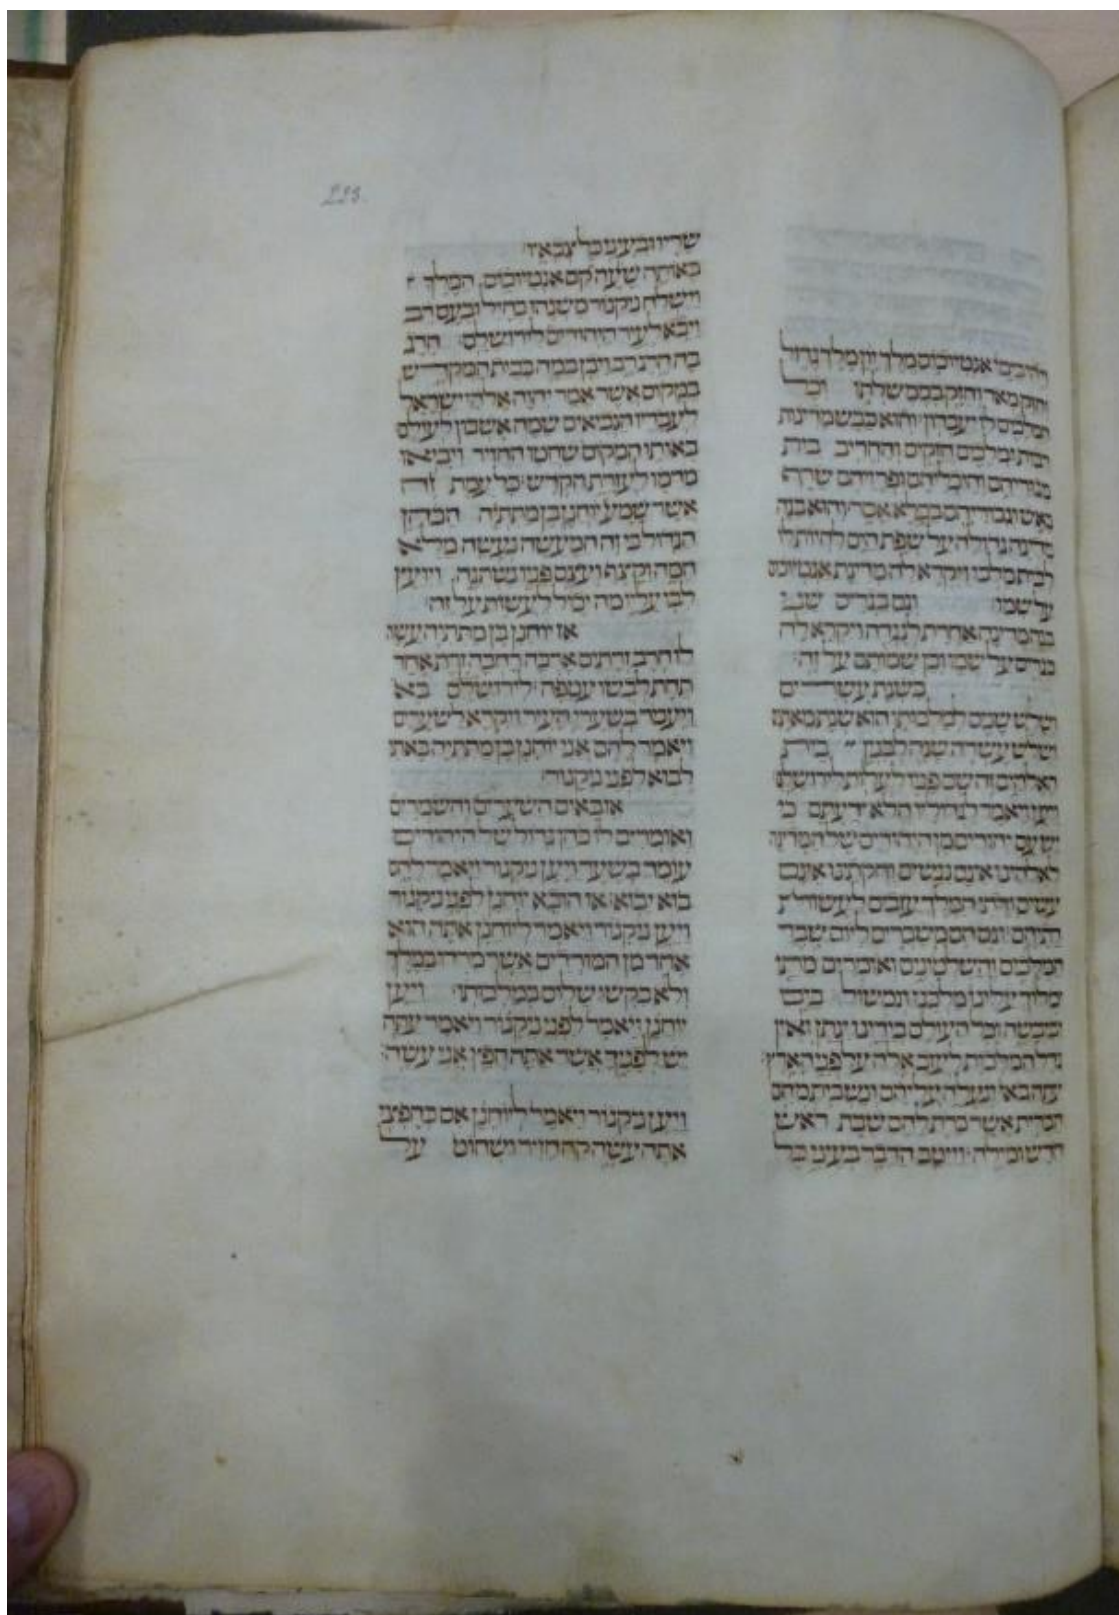 223
ויהי בימי אנטיוכוס מלך יון מלך גדול
וחזק מאד וחזק בממשלתו וכל
המלכים לו יעבדון והוא כבש מדינות
רבות ומלכים חזקים והחריב בית
והיכליהם שרף
באש ואסר והוא בנה
מדינה גדולה על שפת הים להיות לו
לבית מלכו ויקרא לה מדינת אנטיוכס
על שמו וגם בגריס שני
בנה מדינה אחרת לנגדה ויקרא לה
בגריס על שמו וכן שמותם על זה
בשנת עשרים
ושלש שנים למלכותו הוא שנת מאתים
ושלש עשרה שנה לבנין בית
האלהים זה שם פניו לעלות לירושלם
ויען ויאמר לגדוליו הלא ידעתם כי
יש עם יהודים מן היהודים של המדינה
לאלהינו אינם נגשים וחקתנו אינם
עשים ודתי המלך יעזבים לעשות
דתיהם וגם הם משברים ליום שבר
המלכים והשלטונים ואומרים מתי
מלוך עלינו מלכנו ונמשול בים
וביבשה וכל העולם בידינו ינתן ואין
גדל המלכות ליעזב אלה על פני הארץ
עתה באו ונעלה עליהם ונשבית מהם
הברית אשר כרת להם שבת ראש
חדש ומילה וייטב הדבר בעיני כל
שריו ובעיני כל צבאיו
באותה שעה קם אנטיוכוס המלך
וישלח ניקנור משנהו בחיל ובעם רב
ויבא לעיר היהודים לירושלם הרג
בה הרג רב ויבן במה בבית המקדש
במקום אשר אמר יהוה אלהי ישראל
לעבדיו הנביאים שמה אשכון לעולם
באותו המקום שחטו החזיר ויביאו
מדמו לעזרת הקדש כל עמת זה
אשר שמע יוחנן בן מתתיה הכהן
הגדול כי זה המעשה נעשה מלא
חמה וקצף וענם פניו נשתנה ויועץ
לבו עליו מה יכול לעשות על זה
אז יוחנן בן מתתיה עשה
לו חרב זרתים ארכה רחבה זרת אחד
תחת לבשו עטפה לירושלם בא
ויעמד בשערי העיר ויקרא לשערים
ויאמר להם אני יוחנן בן מתתיה באתי
לבוא לפני ניקנור
אז באים השערים והשמרים
ואומרים לו כהן גדול של היהודים
עומד בשער ויען ניקנור ויאמר להם
בוא יבוא אז הובא יוחנן לפני ניקנור
ויען ניקנור ויאמר ליוחנן אתה הוא
אחד מן המורדים אשר מרדו במלך
ולא בקשי שלום במלכותו ויען
יוחנן ויאמר לפני ניקנור ויאמר עתה
יש לפניך אשר אתה חפץ אני עשה
ויען ניקנור ויאמר ליוחנן אם כחפצי
אתה עשה קח חזיר ושחוט על